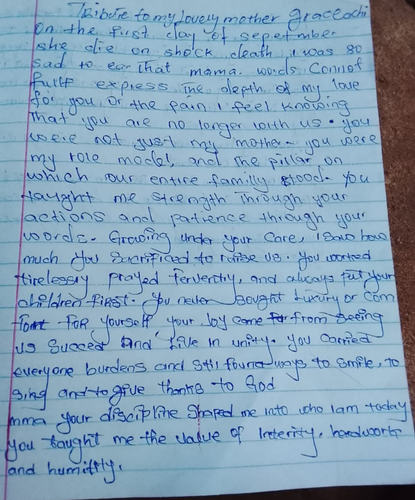 Tribute to my lovely mother Grace ochi
on the first day of sepetmber
she die on shock death i was so
sad to ear that mama. words Connot
fully express the depth of my love
for you Or the pain i feel knowing
that you are no longer with us. you
were not just my mother. you were
my role model, and the pillar on
which our entire family stood. you
taught me strength through your
actions and patience through your
words. Growing under your care, i saw how
much you sacrificed to raise us. you worked
tirelessly prayed ferverntly, and always put your
children first. you never sought luxury or com
fort for yourself your Joy came from seeing
us succeed and live in unity. you carried
everyone burdens and still found ways to smile, to
sing and to give thanks to God
mma your discipline shaped me into who I am today
you taught me the value of Interity, hardwork
and humility.